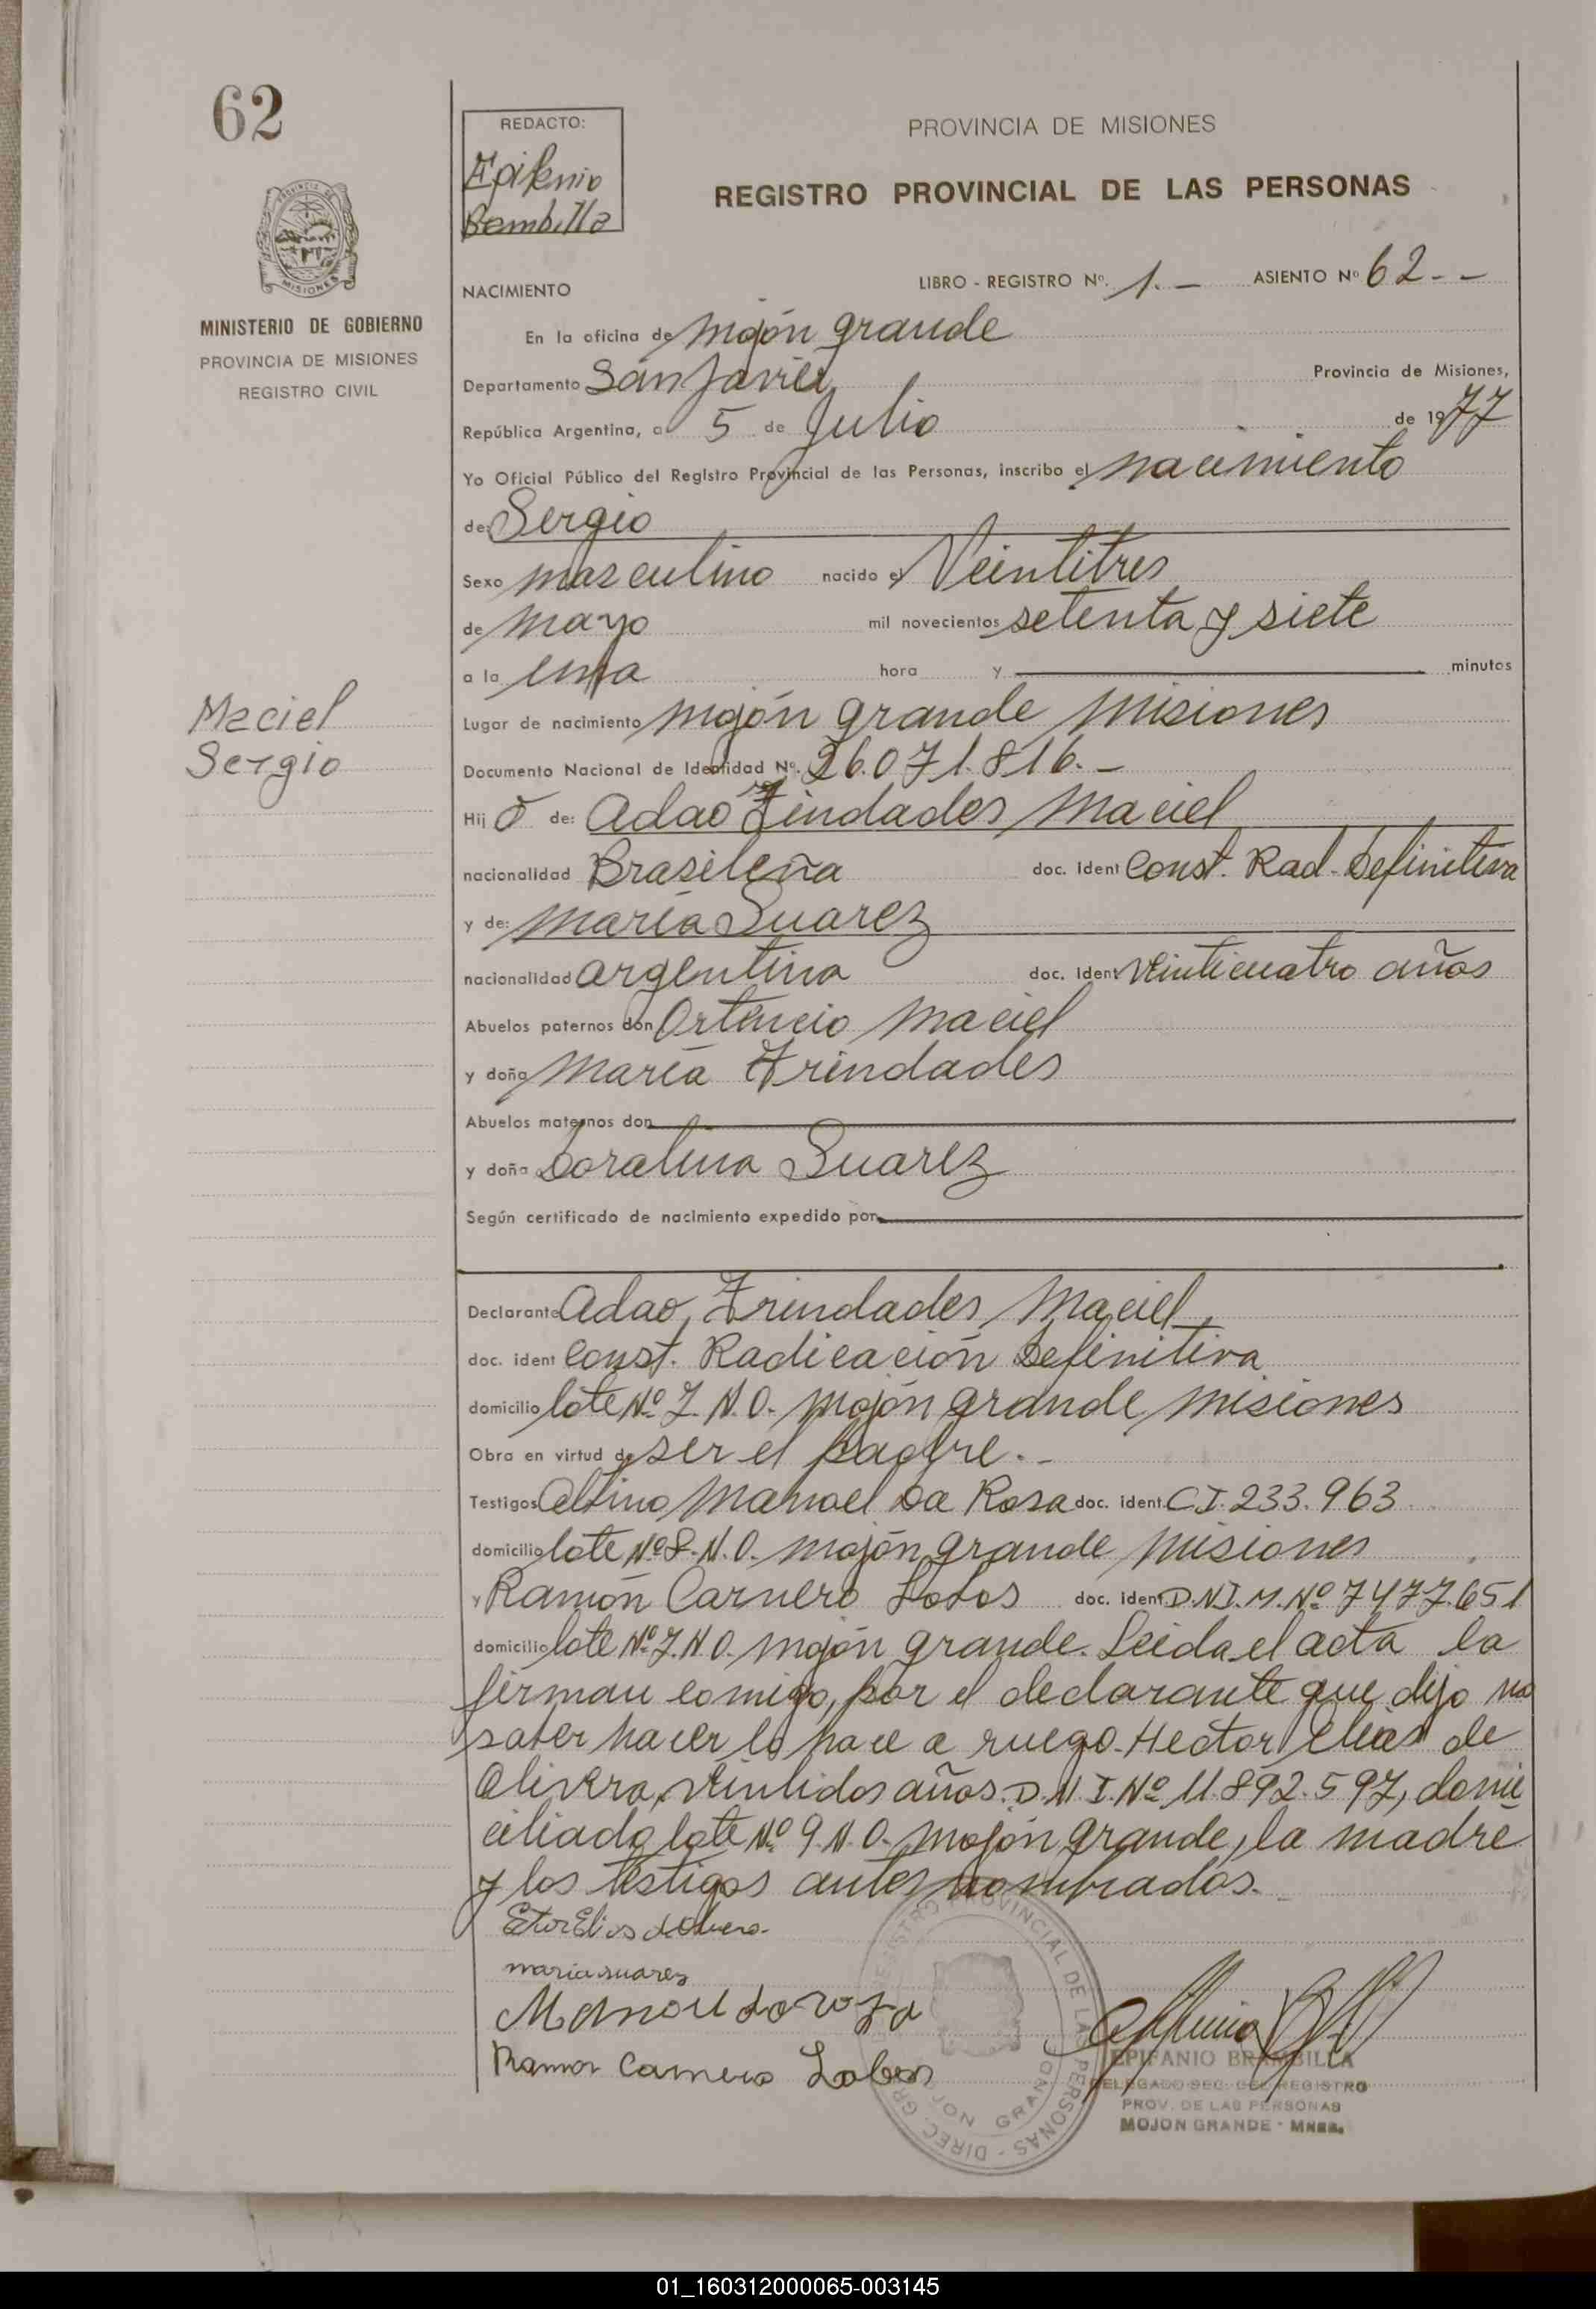 62
MINISTERIO DE GOBIERNO
PROVINCIA DE MISIONES
REGISTRO CIVIL
Maciel
Sergio
REDACTO:
Epifenio
Bembilla
PROVINCIA DE MISIONES
REGISTRO PROVINCIAL DE LAS PERSONAS
NACIMIENTO LIBRO - REGISTRO Nº. 1.- ASIENTO Nº 62--
En la oficina de Mojón grande
Departamento San Javier Provincia de Misiones,
República Argentina, a 5 de Julio de 1977
Yo Oficial Público del Registro Provincial de las Personas, inscribo el nacimiento
de: Sergio
Sexo masculino nacido el Veintitres
de mayo mil novecientos setenta y siete
a la una hora y minutos
Lugar de nacimiento Mojón grande Misiones
Documento Nacional de Identidad Nº. 26.071.816.-
Hij o de: Adao Tindades Maciel
nacionalidad Brasileña doc. ident Const. Rad. Definitiva
y de: María Suarez
nacionalidad argentina doc. ident veinticuatro años
Abuelos paternos don Ortencio Maciel
y doña María Trindades
Abuelos maternos don
y doña Doralina Suarez
Según certificado de nacimiento expedido por
Declarante Adao Trindades Maciel
doc. ident Const. Radicación Definitiva
domicilio lote Nº 7. N.O. Mojón grande Misiones
Obra en virtud de ser el padre.-
Testigos Altino Manoel Da Rosa doc. ident. C.I. 233.963
domicilio lote Nº 8. N.O. Mojón grande Misiones
y Ramón Carnero Lobos doc. ident D.N.I.M. Nº 7477.651
domicilio lote Nº 7. N.O. Mojón grande. Leida el acta la
firman comigo, por el declarante que dijo no
saber hacer lo hace a ruego Hector Elias de
Olivera, veintidos años. D.N.I. Nº 11.892.597, domi
ciliado lote Nº 9. N.O. Mojón grande, la madre
y los testigos antes nombrados.
maria suarez
Manoel da roza
Ramon Carnero Lobos
REGISTRO PROVINCIAL DE LAS PERSONAS - DIREC. GRAL.
MOJON GRANDE
EPIFANIO BRAMBILLA
DELEGADO SEC. DEL REGISTRO
PROV. DE LAS PERSONAS
MOJON GRANDE - MNES.
01_160312000065-003145